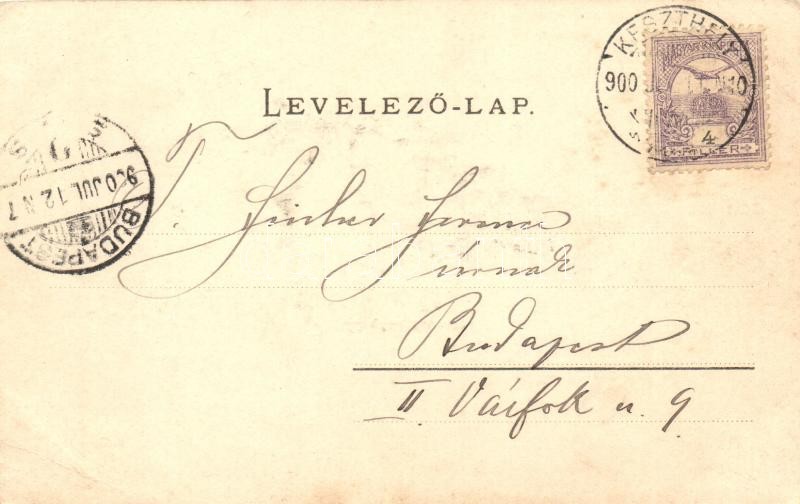 KESZTHELY
MAGYAR KIR. POSTA
900 N10
4
FILLÉR
LEVELEZŐ-LAP.
900 JUL. 12. N 7
BUDAPEST
T.
úrnak
Budapest
II Várfok u. 9